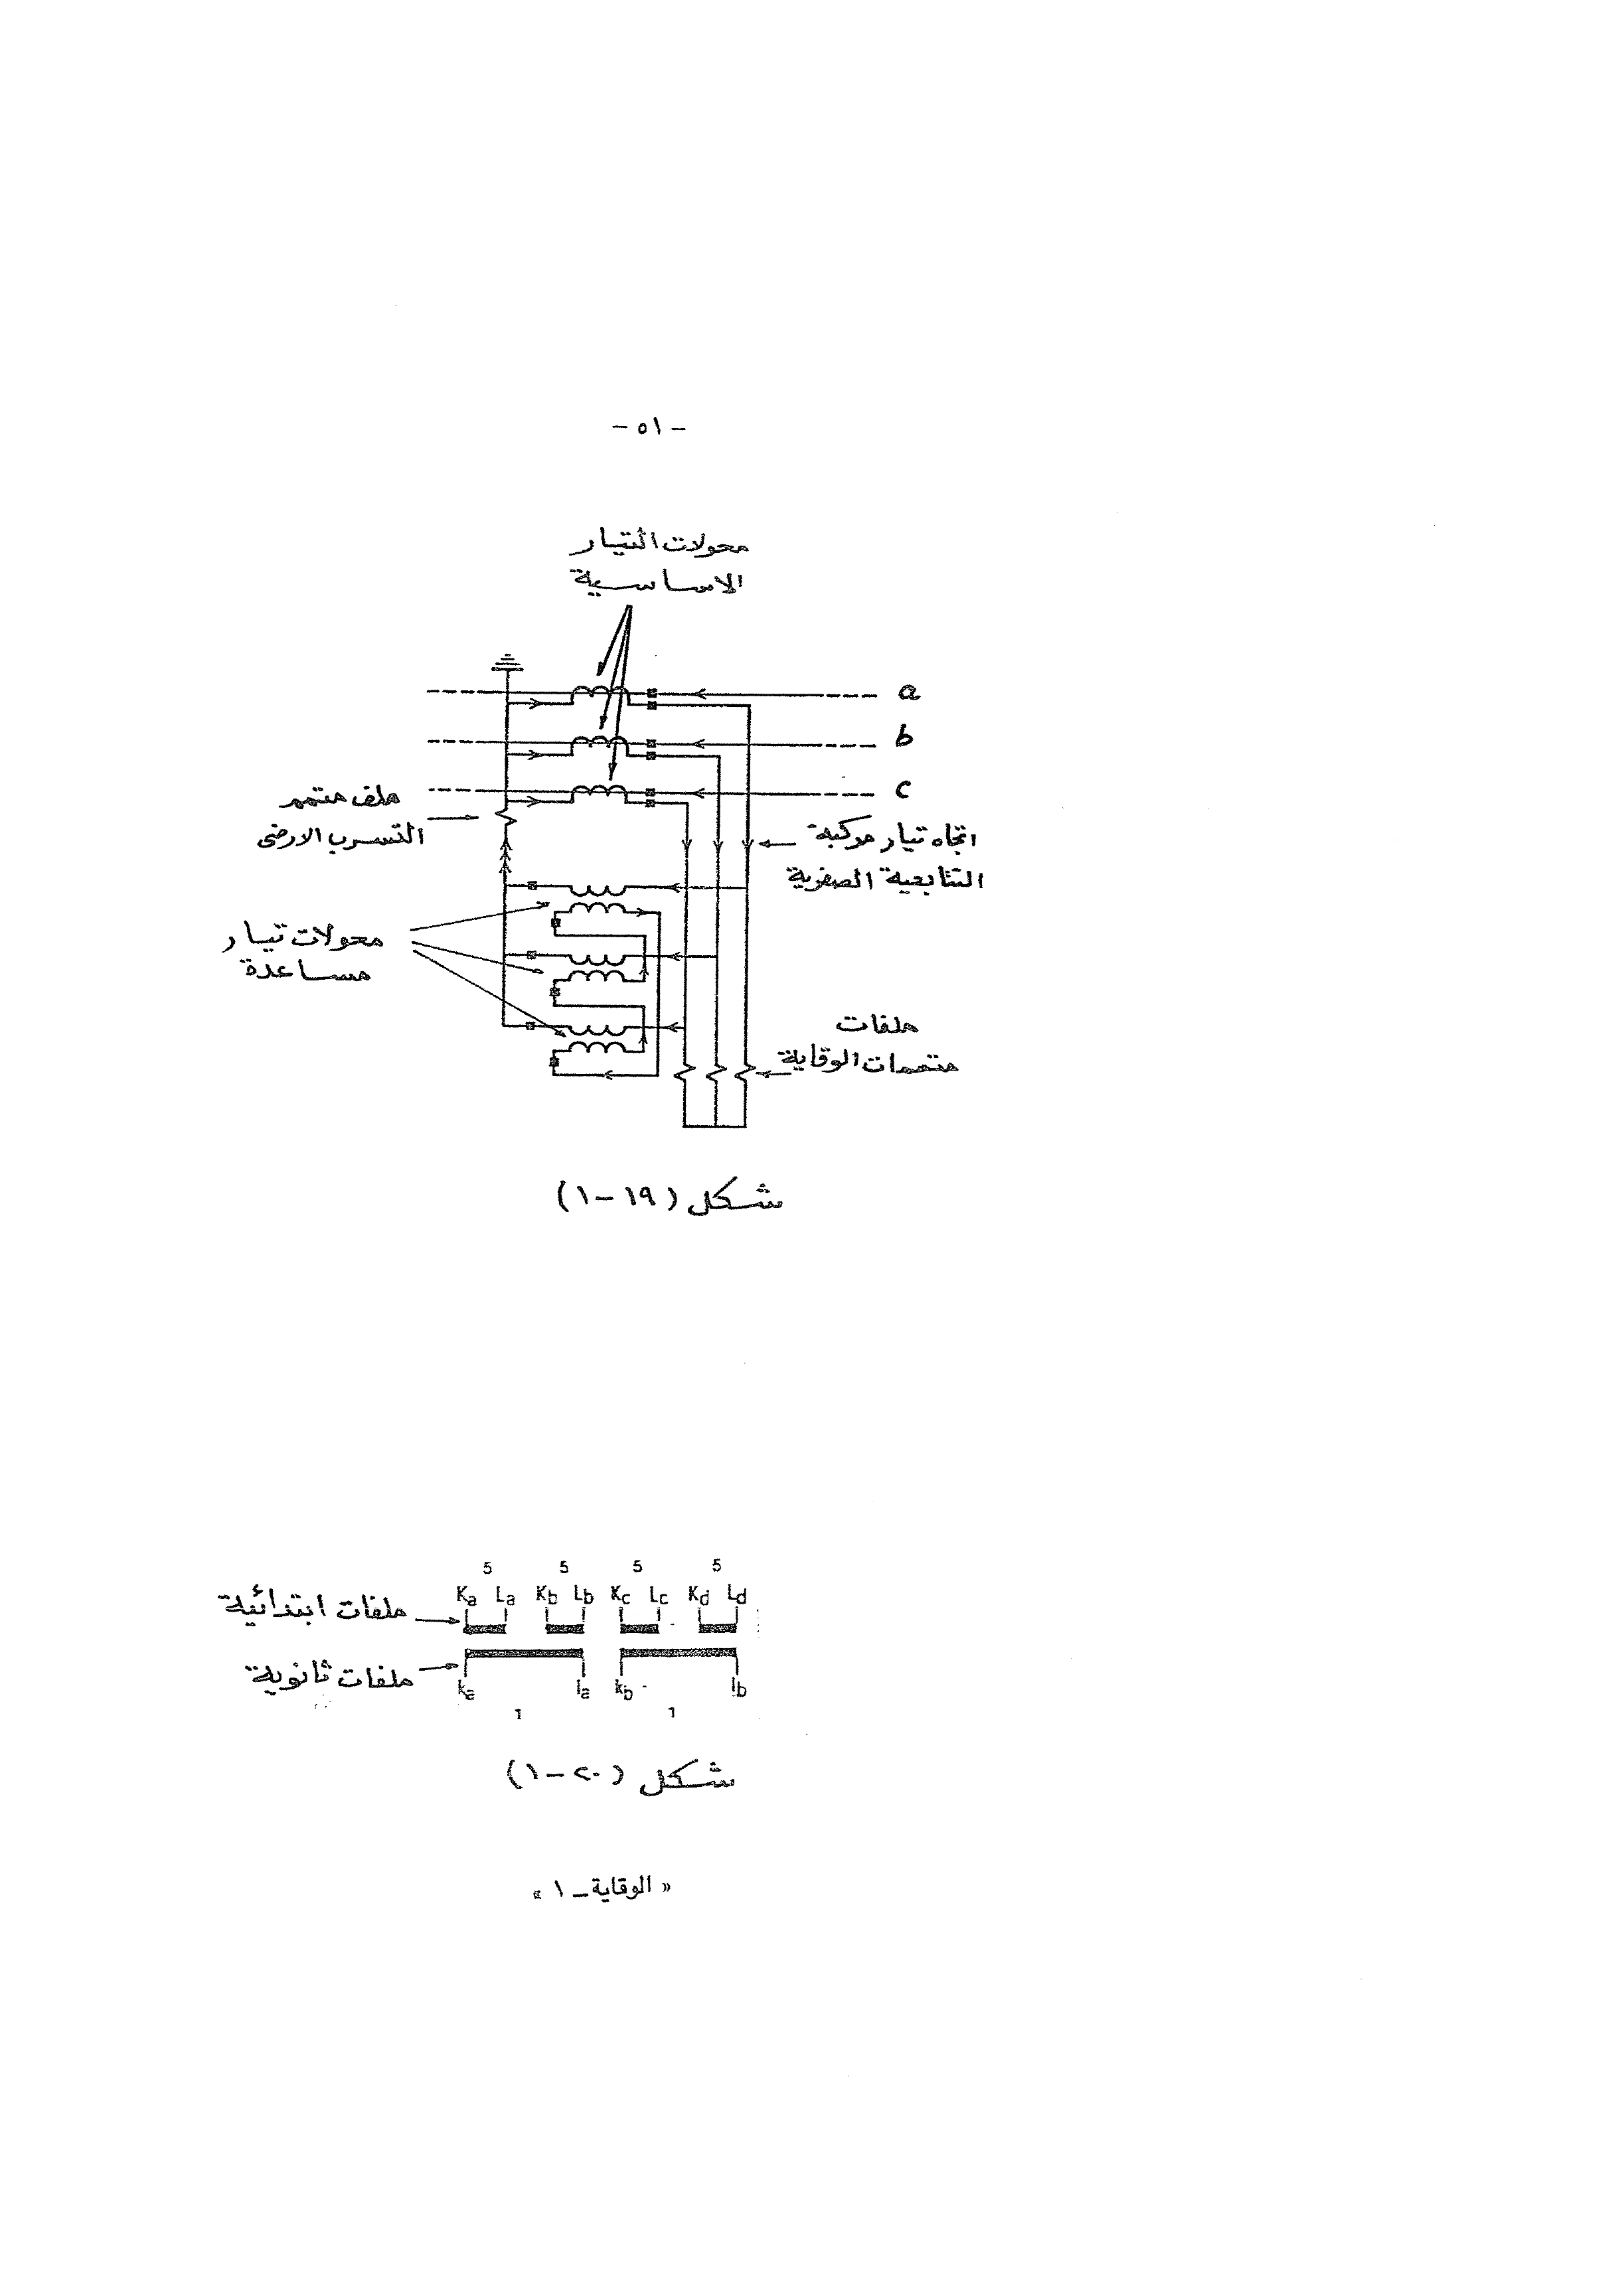 - ٥١ -
محولات التيار
الاساسية
a
b
c
ملف متمم
التسرب الارضى
اتجاه تيار مركبة
التتابعية الصفرية
محولات تيار
مساعدة
ملفات
متممات الوقاية
شكل (١٩-١)
5 5 5 5
Ka La Kb Lb Kc Lc Kd Ld
ملفات ابتدائية
ملفات ثانوية
ka la kb lb
1 1
شكل (٢٠-١)
« الوقاية ـ ١ »